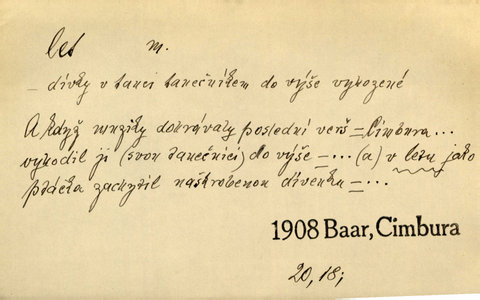 let m.
– dívky v tanci tanečníkem do výše vyhozené
A když muziky dohrávaly poslední verš = Cimbura...
vyhodil ji (svou tanečnici) do výše = ... (a) v letu jako
ptáčka zachytil naškrobenou divenku = ...
1908 Baar, Cimbura
20, 18;